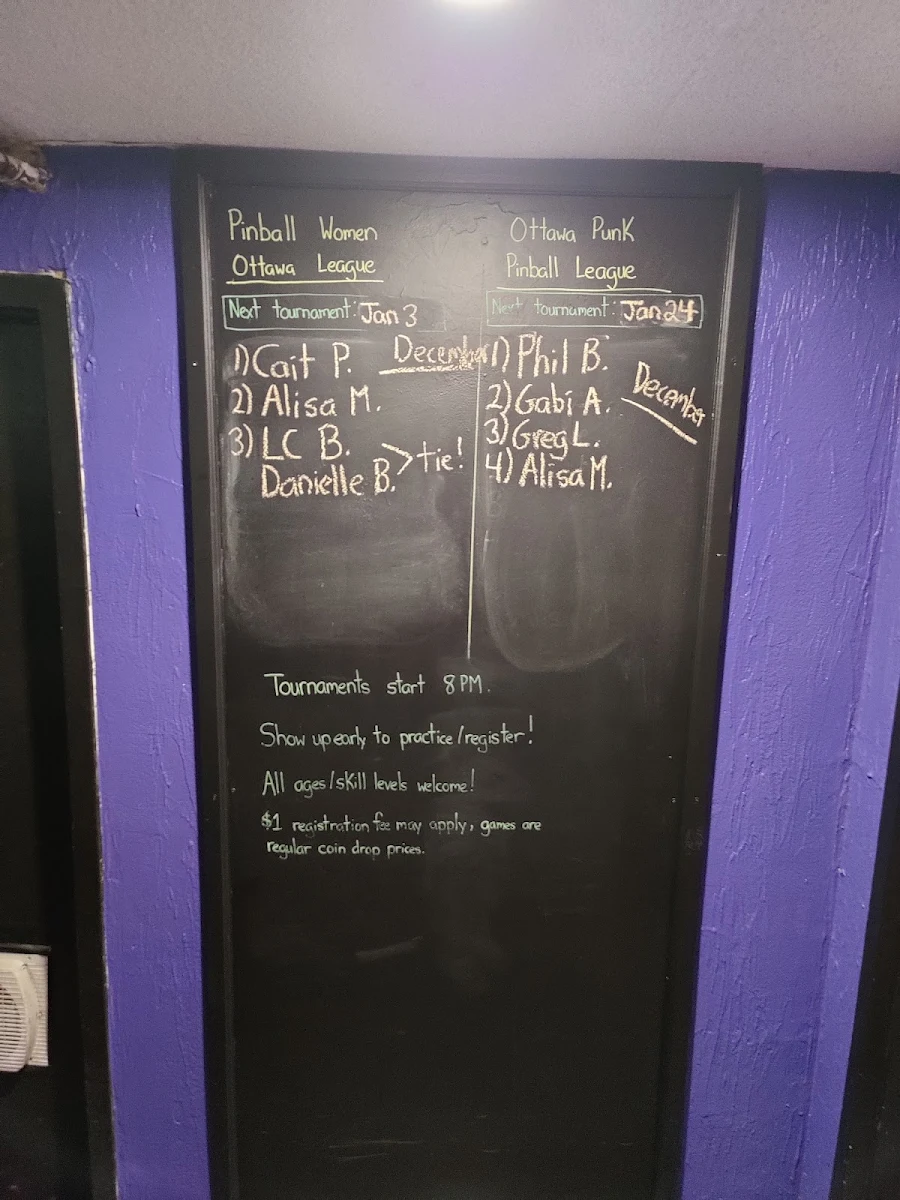 Pinball Women
Ottawa League
Next tournament: Jan 3
1) Cait P. December
2) Alisa M.
3) LC B.
Danielle B. > tie!
Ottawa Punk
Pinball League
Next tournament: Jan 24
1) Phil B.
December
2) Gabi A.
3) Greg L.
4) Alisa M.
Tournaments start 8PM.
Show up early to practice/register!
All ages/skill levels welcome!
$1 registration fee may apply, games are
regular coin drop prices.